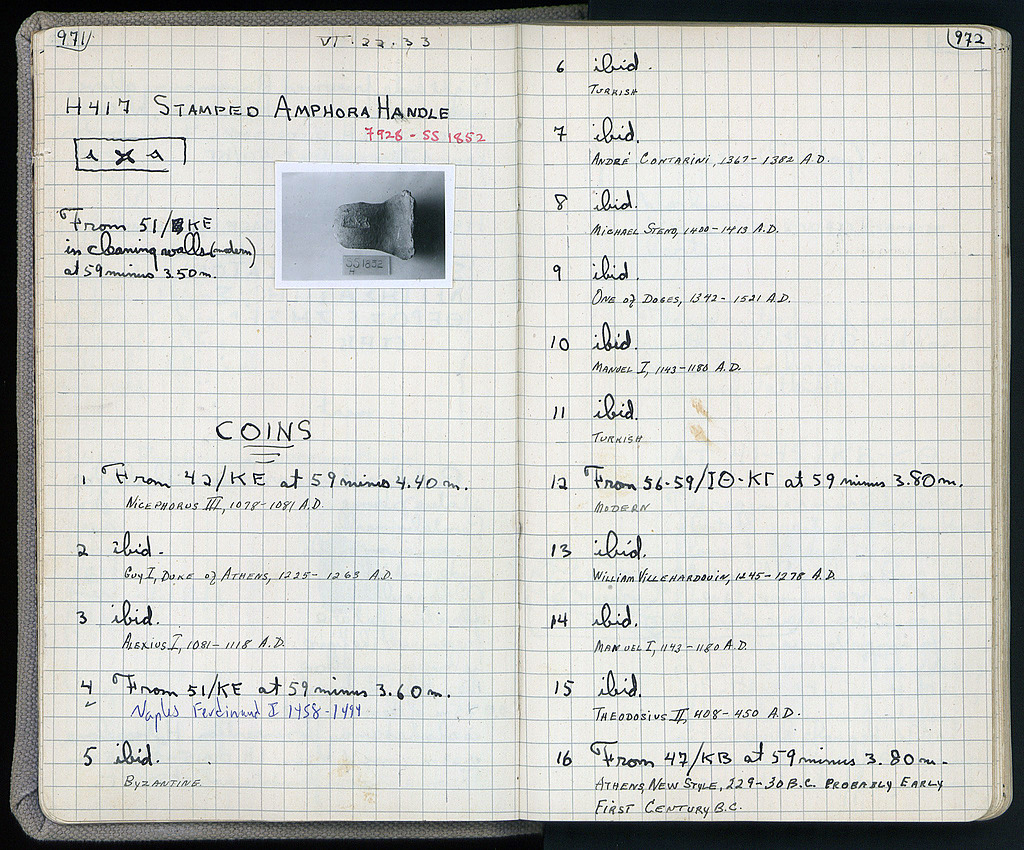 971
VI·22·33
H417 STAMPED AMPHORA HANDLE
7928 - SS 1852
From 51/KE
in cleaning walls (modern)
at 59 minus 3.50 m.
SS 1852
COINS
1 From 42/KE at 59 minus 4.40 m.
NICEPHORUS III, 1078-1081 A.D.
2 ibid.
GUY I, DUKE of ATHENS, 1225-1263 A.D.
3 ibid.
ALEXIUS I, 1081-1118 A.D.
4 From 51/KE at 59 minus 3.60 m.
Naples Ferdinand I 1458-1494
5 ibid.
BYZANTINE.
972
6 ibid.
TURKISH
7 ibid.
ANDRÉ CONTARINI, 1367-1382 A.D.
8 ibid.
MICHAEL STENO, 1400-1413 A.D.
9 ibid.
ONE of DOGES, 1342-1521 A.D.
10 ibid.
MANUEL I, 1143-1180 A.D.
11 ibid.
TURKISH
12 From 56-59/ΙΘ-ΚΓ at 59 minus 3.80 m.
MODERN
13 ibid.
WILLIAM VILLEHARDOUIN, 1245-1278 A.D.
14 ibid.
MANUEL I, 1143-1180 A.D.
15 ibid.
THEODOSIUS II, 408-450 A.D.
16 From 47/KB at 59 minus 3.80 m.
ATHENS, NEW STYLE, 229-30 B.C. PROBABLY EARLY
FIRST CENTURY B.C.